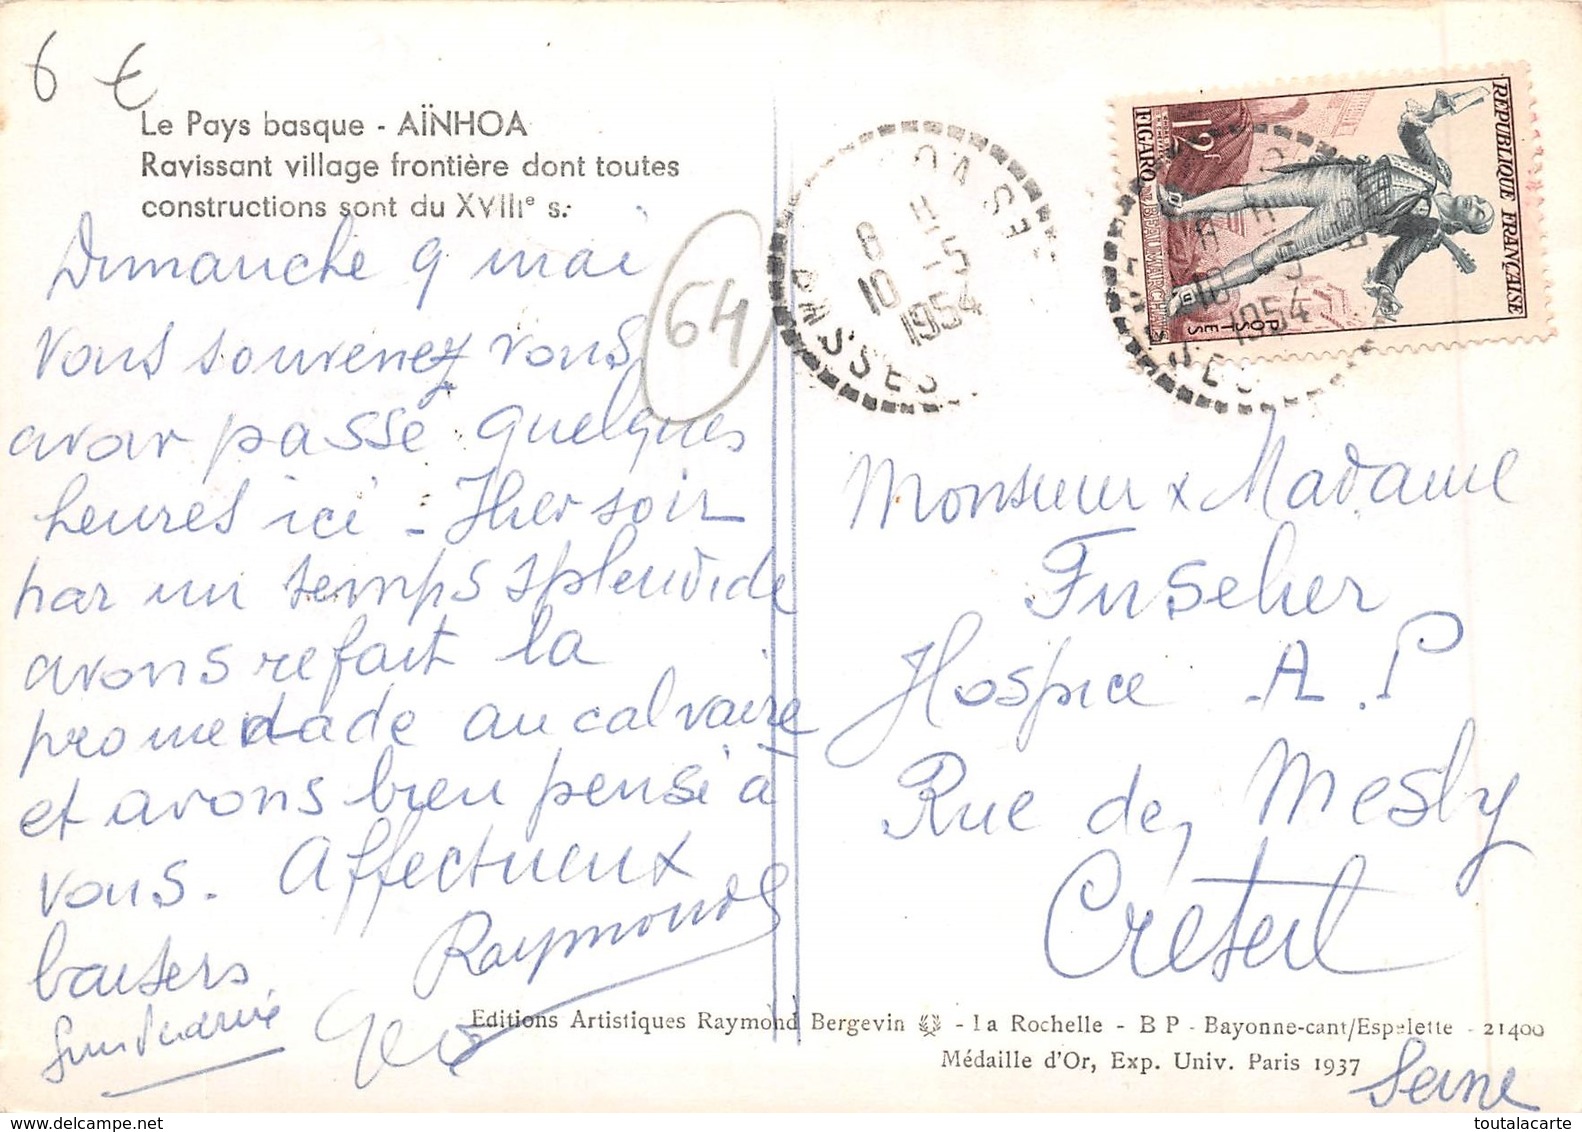 6 €
Le Pays basque - AÏNHOA
Ravissant village frontière dont toutes
constructions sont du XVIIIe s.
Dimanche 9 mai
vous souvenez vous
avoir passé quelques
heures ici - Hier soir
par un temps splendide
avons refait la
promedade au calvaire
et avons bien pensé à
vous. Affectueux
baisers
Raymonde
Geo
64
8 H
10 -5
1954
REPUBLIQUE FRANÇAISE
12F
FIGARO
BEAUMARCHAIS
POSTES
18 H
10 -5
1954
Monsieur x Madame
Fuscher
Hospice A. P
Rue de, Mesly
Creteil
Seine
Editions Artistiques Raymond Bergevin - La Rochelle - B P - Bayonne-cant/Espelette - 21400
Médaille d'Or, Exp. Univ. Paris 1937
toutalacarte